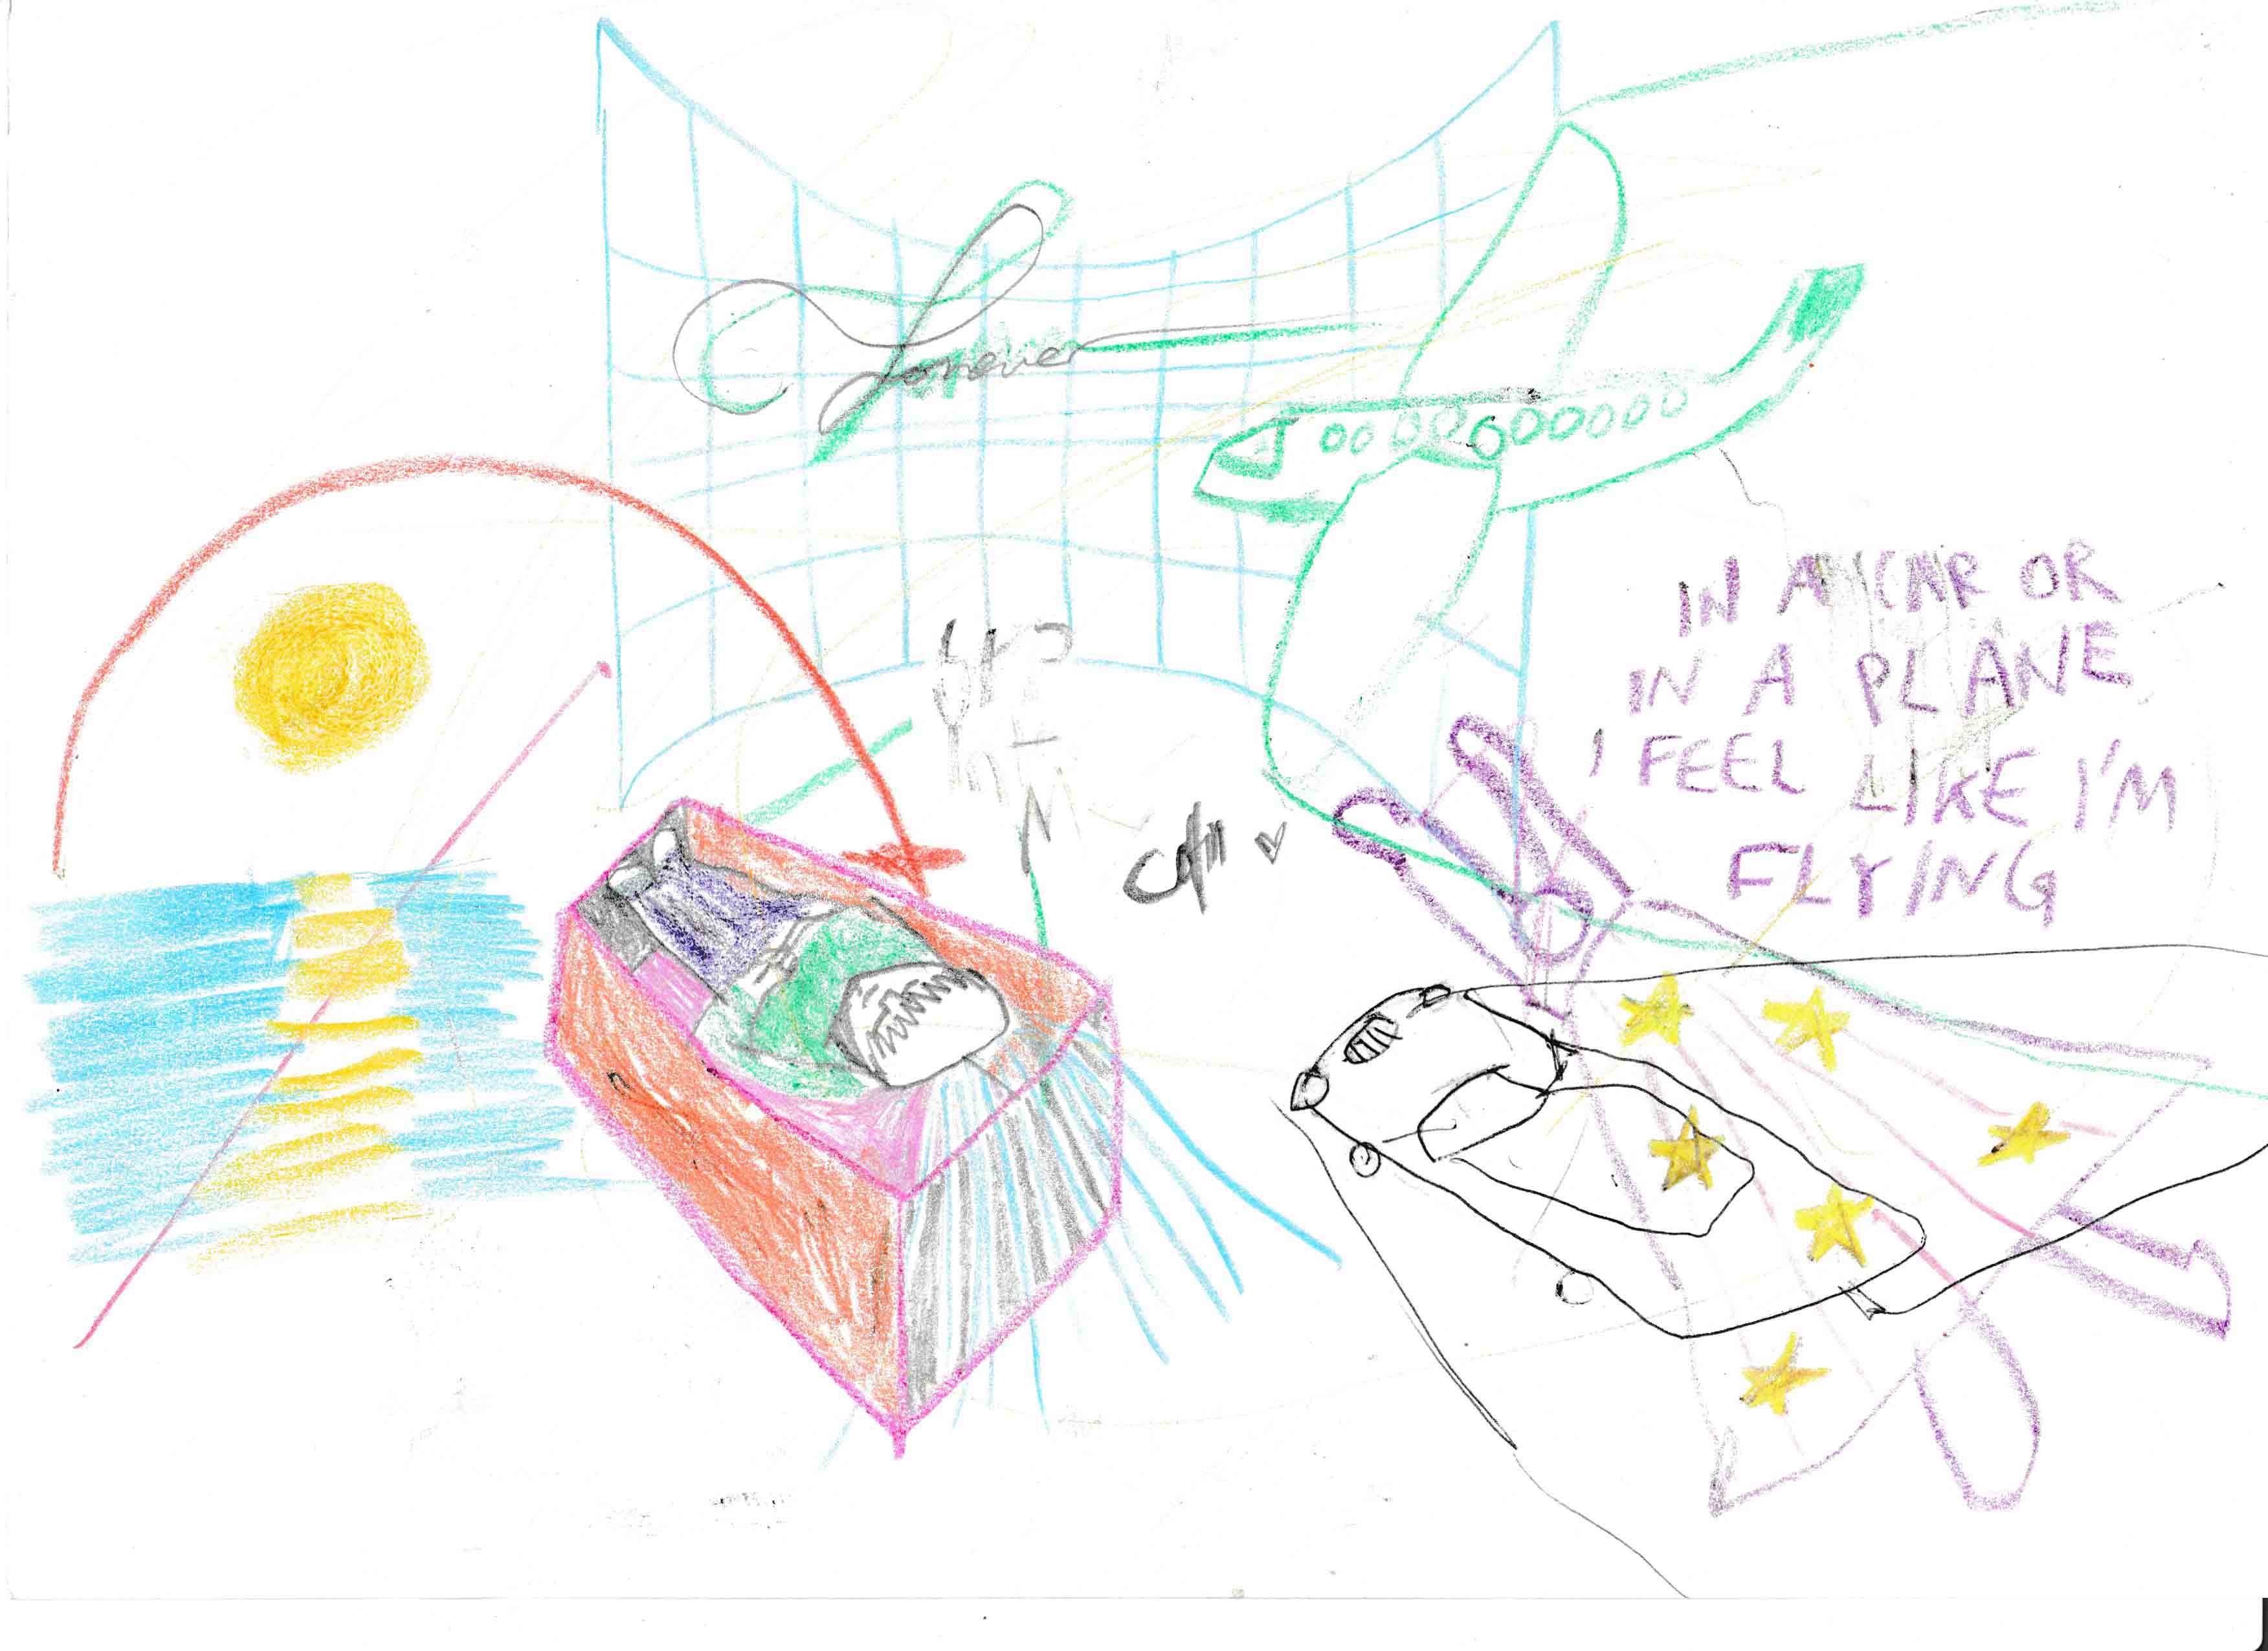 Forever
IN A CAR OR
IN A PLANE
I FEEL LIKE I'M
FLYING